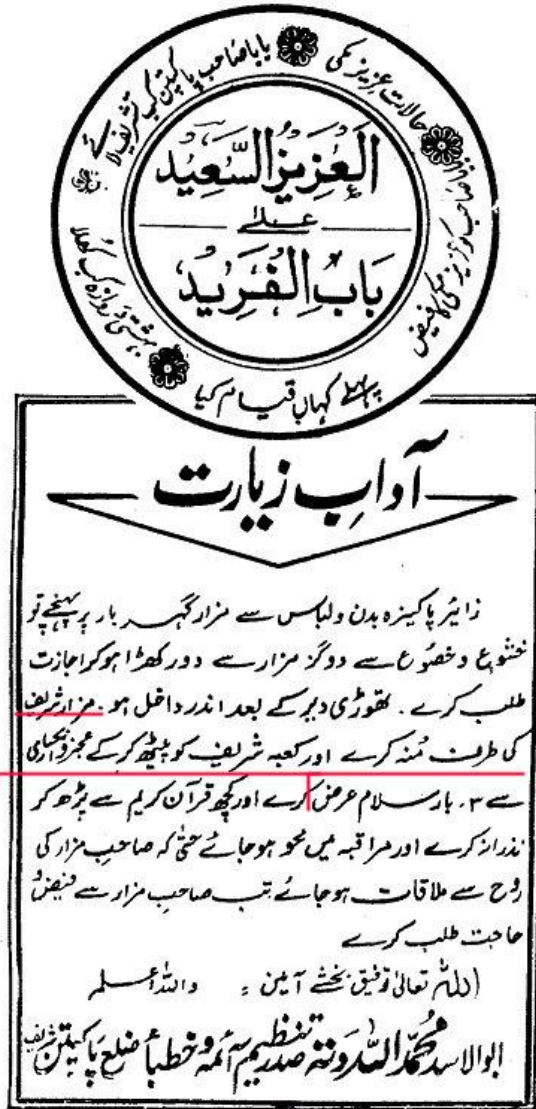 حالات عزیز مکی
بابا صاحب پاکپتن کب تشریف لائے
صاحب کو عزیز مکی کا فیض
بہشتی دروازہ کب کھلا
پہلے کہاں قیام کیا
العزیز السعید
علیٰ
باب الفرید
آدابِ زیارت
زائیر پاکیزہ بدن ولباس سے مزار گہر بار پر پہنچے تو
خشوع وخضوع سے دوگز مزار سے دور کھڑا ہوکر اجازت
طلب کرے . تھوڑی دیر کے بعد اندر داخل ہو . مزار شریف
کی طرف مُنہ کرے اور کعبہ شریف کو پیٹھ کرکے عجزو انکساری
سے ۳. بار سلام عرض کرے اور کچھ قرآن کریم سے پڑھ کر
نذرانہ کرے اور مراقبہ میں محو ہوجائے حتٰی کہ صاحبِ مزار کی
روح سے ملاقات ہوجائے تب صاحبِ مزار سے فیض و
حاجت طلب کرے
اللہ تعالیٰ توفیق بخشے آمین : واللہ اعلم
ابوالاسد محمد اللہ دتہ صدر تنظیم آئمہ وخطبأ ضلع پاکپتن شریف